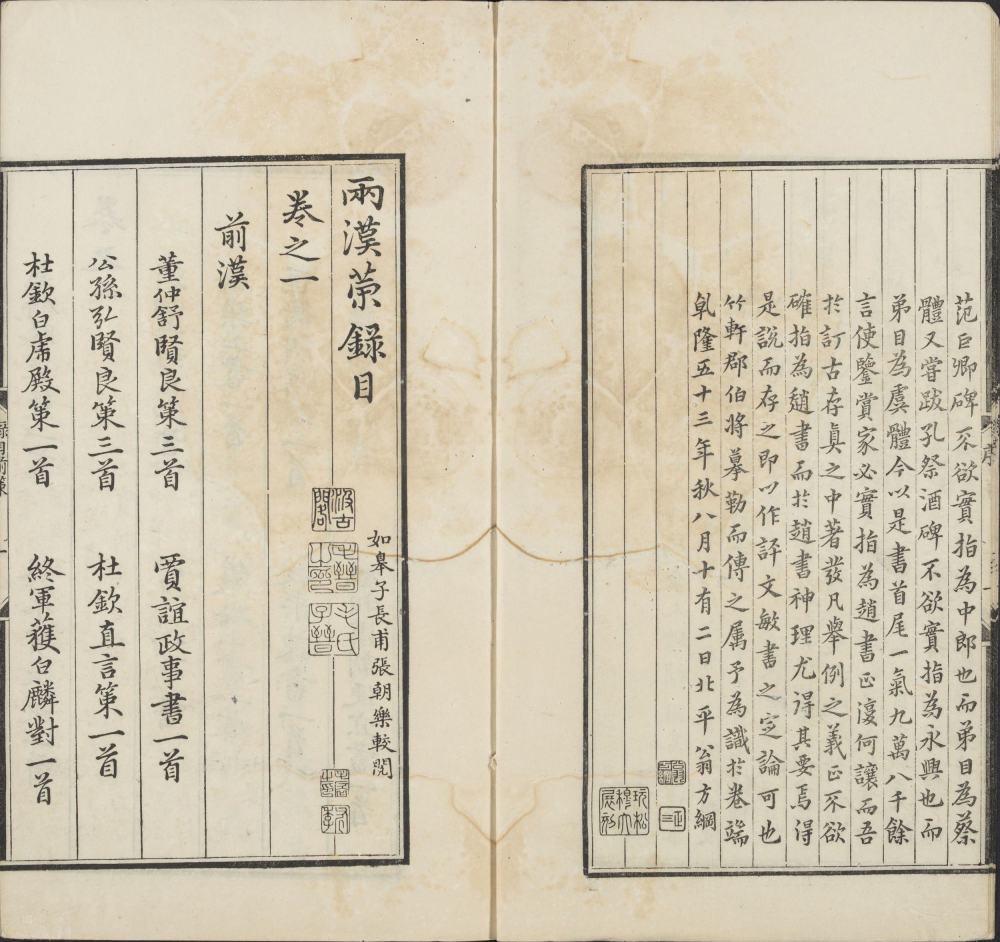 范巨卿碑不欲實指為中郎也而弟目為蔡
體又嘗跋孔祭酒碑不欲實指為永興也而
弟目為虞體今以是書首尾一氣九萬八千餘
言使鑒賞家必實指為趙書正復何讓而吾
於訂古存真之中著發凡舉例之義正不欲
確指為趙書而於趙書神理尤得其要焉得
是說而存之即以作評文敏書之定論可也
竹軒郡伯將摹勒而傳之属予為識於卷端
乹隆五十三年秋八月十有二日北平翁方綱
兩漢策録目
如皋子長甫張朝樂較閱
汲古閣
毛氏子晉
卷之一
前漢
董仲舒賢良策三首 賈誼政事書一首
公孫弘賢良策三首 杜欽直言策一首
杜欽白虎殿策一首 終軍蒦白麟對一首